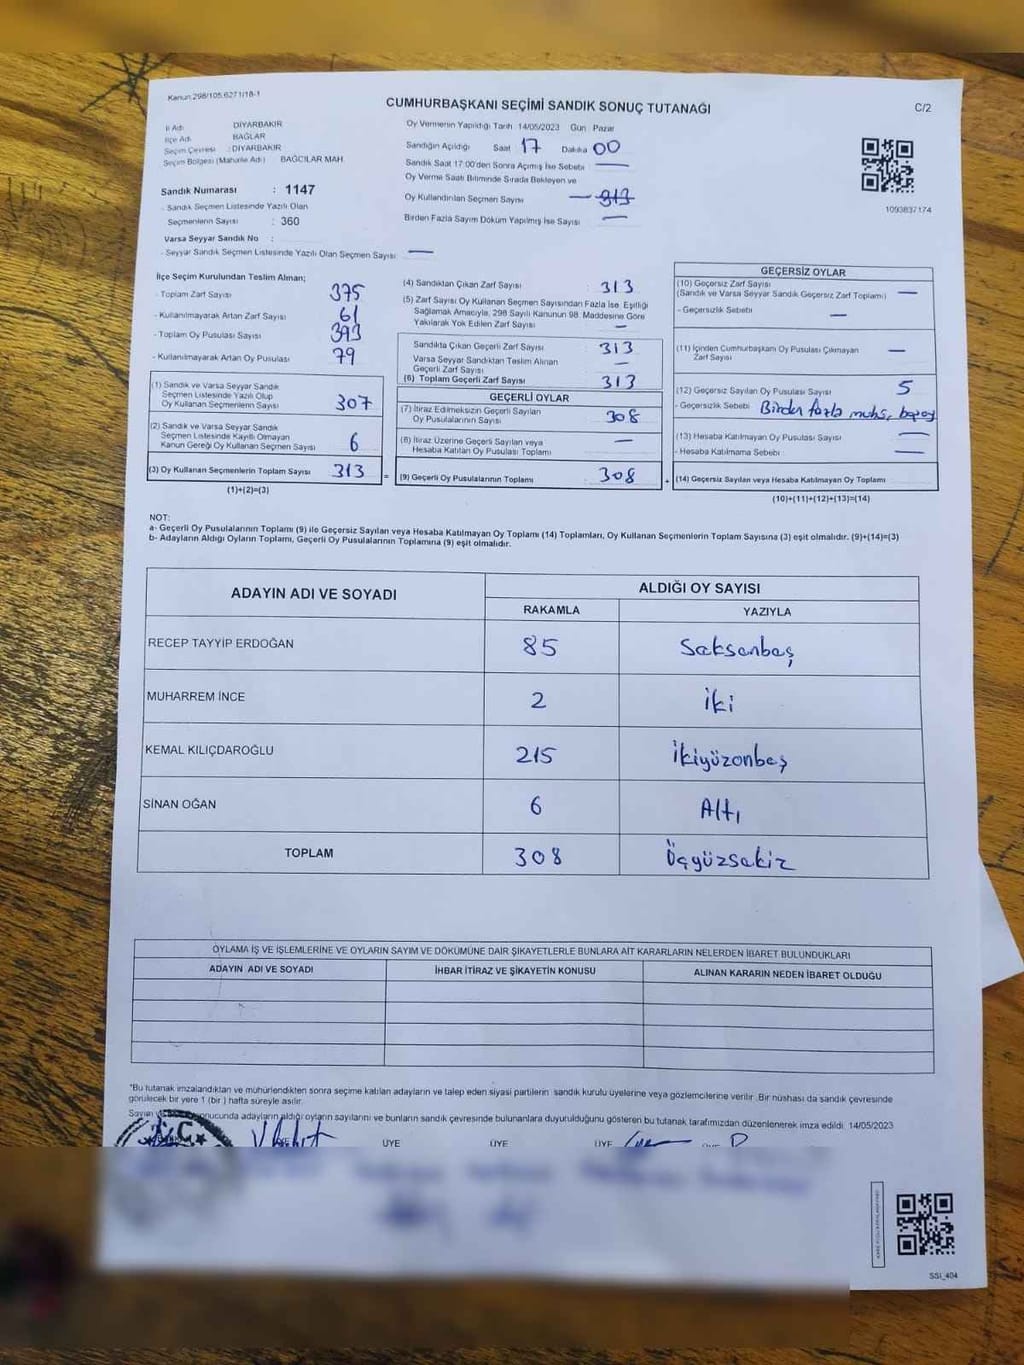 Kanun 298/105.6271/18-1
CUMHURBAŞKANI SEÇİMİ SANDIK SONUÇ TUTANAĞI
C/2
İl Adı : DİYARBAKIR
İlçe Adı : BAĞLAR
Seçim Çevresi : DİYARBAKIR
Seçim Bölgesi (Mahalle Adı) : BAĞCILAR MAH.
Sandık Numarası : 1147
- Sandık Seçmen Listesinde Yazılı Olan
Seçmenlerin Sayısı : 360
Varsa Seyyar Sandık No :
- Seyyar Sandık Seçmen Listesinde Yazılı Olan Seçmen Sayısı : —
Oy Vermenin Yapıldığı Tarih 14/05/2023 Gün : Pazar
Sandığın Açıldığı Saat 17 Dakika 00
Sandık Saat 17:00'den Sonra Açılmış İse Sebebi —
Oy Verme Saati Bitiminde Sırada Bekleyen ve
Oy Kullandırılan Seçmen Sayısı — 313
Birden Fazla Sayım Döküm Yapılmış İse Sayısı —
1093837174
İlçe Seçim Kurulundan Teslim Alınan;
- Toplam Zarf Sayısı 375
- Kullanılmayarak Artan Zarf Sayısı 61
- Toplam Oy Pusulası Sayısı 393
- Kullanılmayarak Artan Oy Pusulası 79
(1) Sandık ve Varsa Seyyar Sandık
Seçmen Listesinde Yazılı Olup
Oy Kullanan Seçmenlerin Sayısı 307
(2) Sandık ve Varsa Seyyar Sandık
Seçmen Listesinde Kayıtlı Olmayan
Kanun Gereği Oy Kullanan Seçmen Sayısı 6
(3) Oy Kullanan Seçmenlerin Toplam Sayısı 313
(1)+(2)=(3)
(4) Sandıktan Çıkan Zarf Sayısı 313
(5) Zarf Sayısı Oy Kullanan Seçmen Sayısından Fazla İse, Eşitliği
Sağlamak Amacıyla, 298 Sayılı Kanunun 98. Maddesine Göre
Yakılarak Yok Edilen Zarf Sayısı —
Sandıkta Çıkan Geçerli Zarf Sayısı 313
Varsa Seyyar Sandıktan Teslim Alınan
Geçerli Zarf Sayısı
(6) Toplam Geçerli Zarf Sayısı 313
GEÇERLİ OYLAR
(7) İtiraz Edilmeksizin Geçerli Sayılan
Oy Pusulalarının Sayısı 308
(8) İtiraz Üzerine Geçerli Sayılan veya
Hesaba Katılan Oy Pusulası Toplamı —
= (9) Geçerli Oy Pusulalarının Toplamı 308 +
GEÇERSİZ OYLAR
(10) Geçersiz Zarf Sayısı
(Sandık ve Varsa Seyyar Sandık Geçersiz Zarf Toplamı) —
- Geçersizlik Sebebi : —
(11) İçinden Cumhurbaşkanı Oy Pusulası Çıkmayan
Zarf Sayısı —
(12) Geçersiz Sayılan Oy Pusulası Sayısı 5
- Geçersizlik Sebebi : Birden fazla
(13) Hesaba Katılmayan Oy Pusulası Sayısı : —
- Hesaba Katılmama Sebebi : —
(14) Geçersiz Sayılan veya Hesaba Katılmayan Oy Toplamı
(10)+(11)+(12)+(13)=(14)
NOT:
a- Geçerli Oy Pusulalarının Toplamı (9) ile Geçersiz Sayılan veya Hesaba Katılmayan Oy Toplamı (14) Toplamları, Oy Kullanan Seçmenlerin Toplam Sayısına (3) eşit olmalıdır. (9)+(14)=(3)
b- Adayların Aldığı Oyların Toplamı, Geçerli Oy Pusulalarının Toplamına (9) eşit olmalıdır.
ADAYIN ADI VE SOYADI
ALDIĞI OY SAYISI
RAKAMLA YAZIYLA
RECEP TAYYİP ERDOĞAN 85 Seksenbeş
MUHARREM İNCE 2 İki
KEMAL KILIÇDAROĞLU 215 İkiyüzonbeş
SİNAN OĞAN 6 Altı
TOPLAM 308 Üçyüzsekiz
OYLAMA İŞ VE İŞLEMLERİNE VE OYLARIN SAYIM VE DÖKÜMÜNE DAİR ŞİKAYETLERLE BUNLARA AİT KARARLARIN NELERDEN İBARET BULUNDUKLARI
ADAYIN ADI VE SOYADI İHBAR İTİRAZ VE ŞİKAYETİN KONUSU ALINAN KARARIN NEDEN İBARET OLDUĞU
"Bu tutanak imzalandıktan ve mühürlendikten sonra seçime katılan adayların ve talep eden siyasi partilerin sandık kurulu üyelerine veya gözlemcilerine verilir. Bir nüshası da sandık çevresinde
görülecek bir yere 1 (bir) hafta süreyle asılır.
Sayım ve onucunda adayların aldığı oyların sayılarını ve bunların sandık çevresinde bulunanlara duyurulduğunu gösteren bu tutanak tarafımızdan düzenlenerek imza edildi. 14/05/2023
ÜYE ÜYE ÜYE ÜYE
SSİ_404